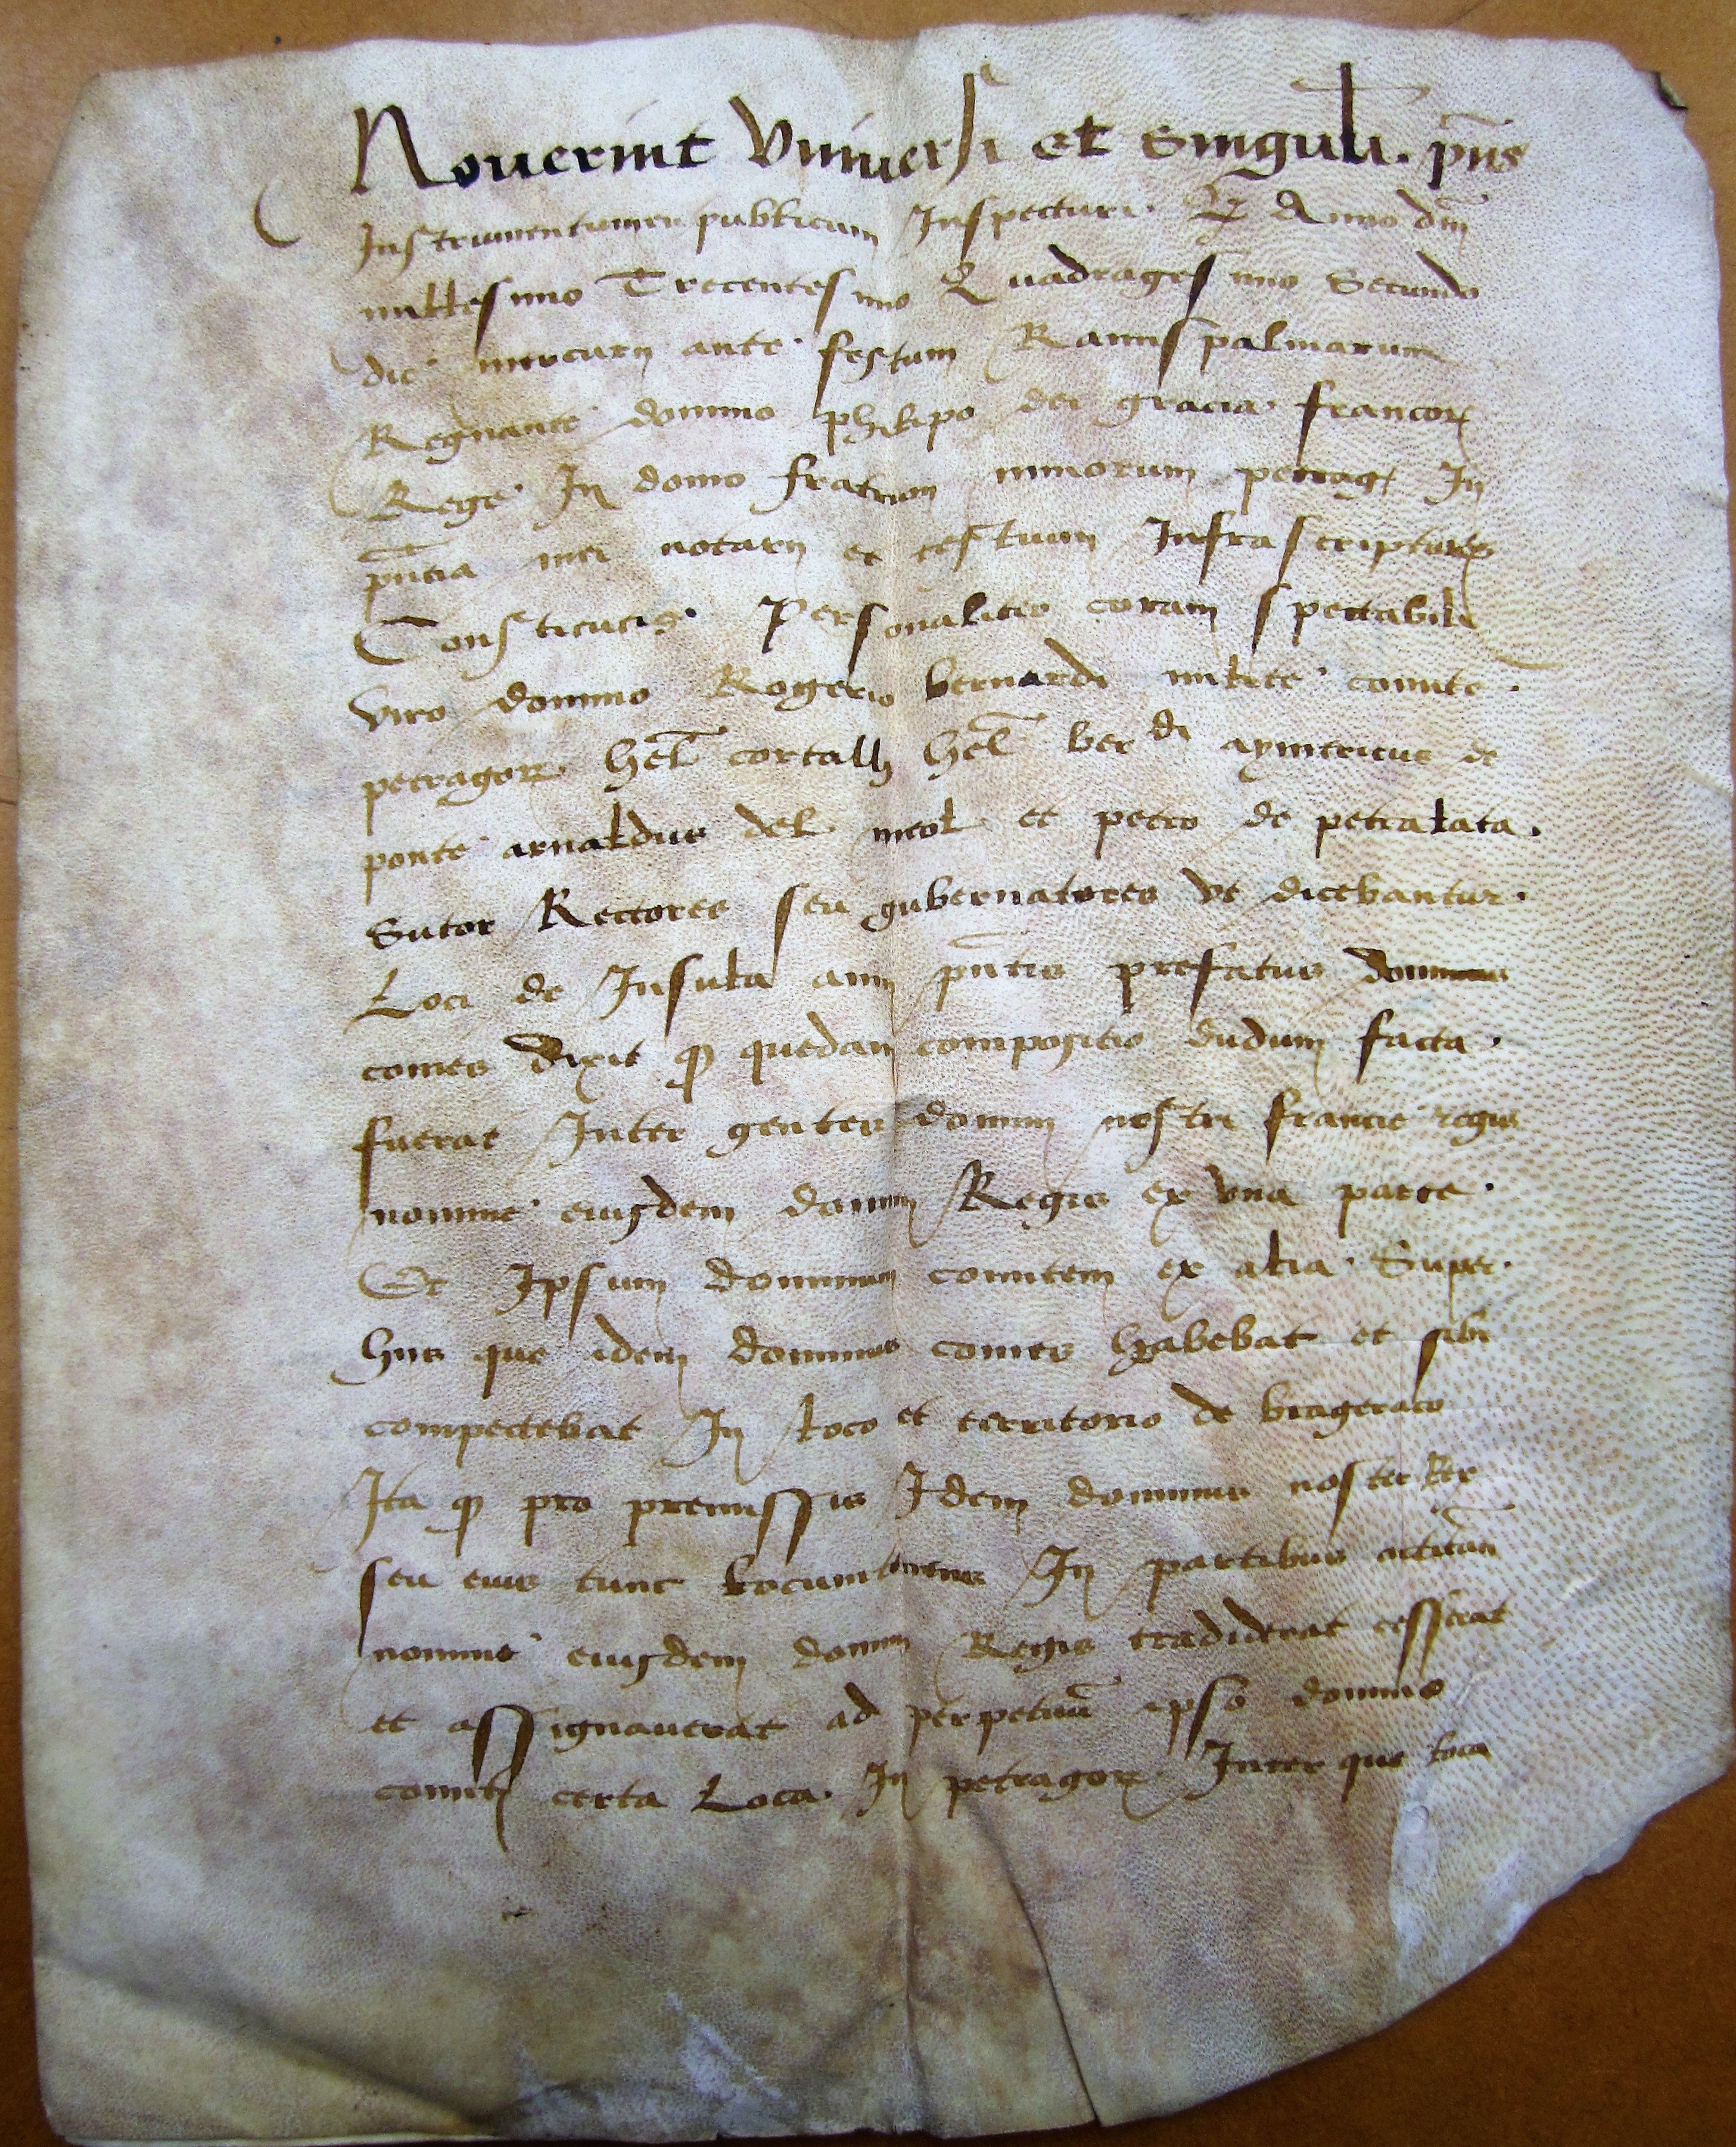 Noverint Vniversi et Singuli. pñs
Instrumentum publicum Inspecturi. Anno dnī
millesimo Trecentesimo Quadragesimo Secundo
die mercurij ante festum Ramispalmarum
Regnante domino philipo dei gracia francoꝝ
Rege In domo fratrum minorum petrag In
pñcia mei notarij et testium Infrascriptorꝝ
Constitutis. Personaliter coram spectabili
viro domino Rogerio bernardi milite comite.
petragoꝝ hel̄ cortally hel̄ berdi aymericus de
ponte arnaldus del meol et petro de petralata.
Sutor Rectores seu gubernatores vt dicebantur.
Loci de Insula pñtis prefatus dominus
comes dixit ꝙ quedam compositio dudum facta.
fuerat Inter gentes domini nostri francie regis
nomine eiusdem domini Regis ex vna parte.
Et Ipsum dominum comitem ex alia. Super.
hijs que idem dominus comes habebat et sibi
compectebat In loco et territorio de brageraco
Ita ꝙ pro premissis Idem dominus noster Rex
seu eius tunc locumtenens In partibus
nomine eiusdem domini Regis tradiderat cesserat
et assignauerat ad perpetuū ipso domino
comiti certa Loca. In petragoꝝ Inter que loca